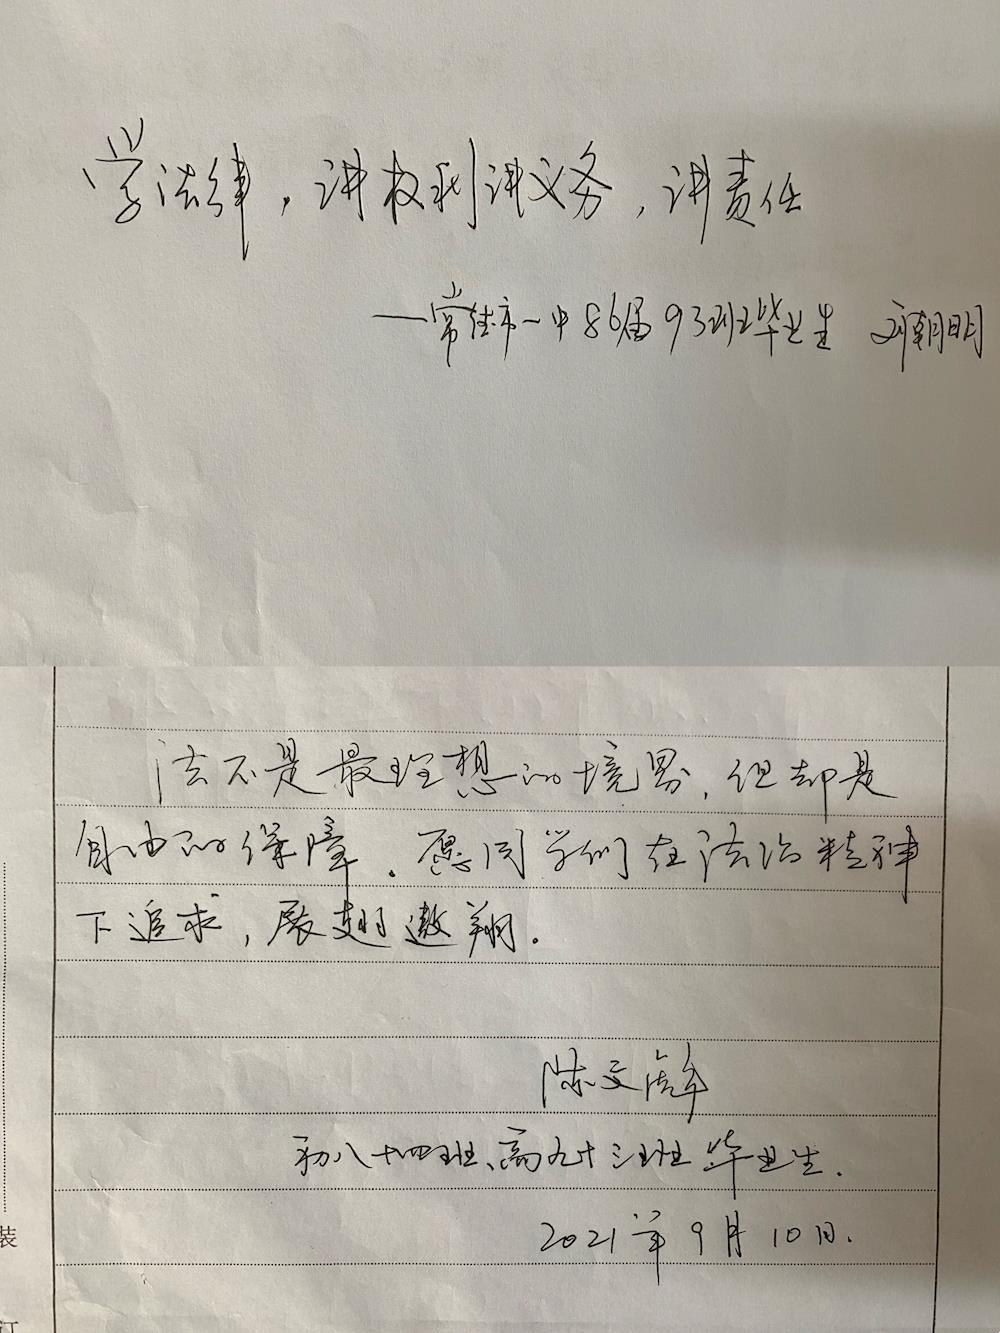 学法律，讲权利讲义务，讲责任
——常德市一中86届93班毕业生 邓朝明
法不是最理想的境界，但却是
自由的保障。愿同学们在法治精神
下追求，展翅遨翔。
陈文
初八十四班、高九十三班班毕业生.
2021年9月10日.
装
订